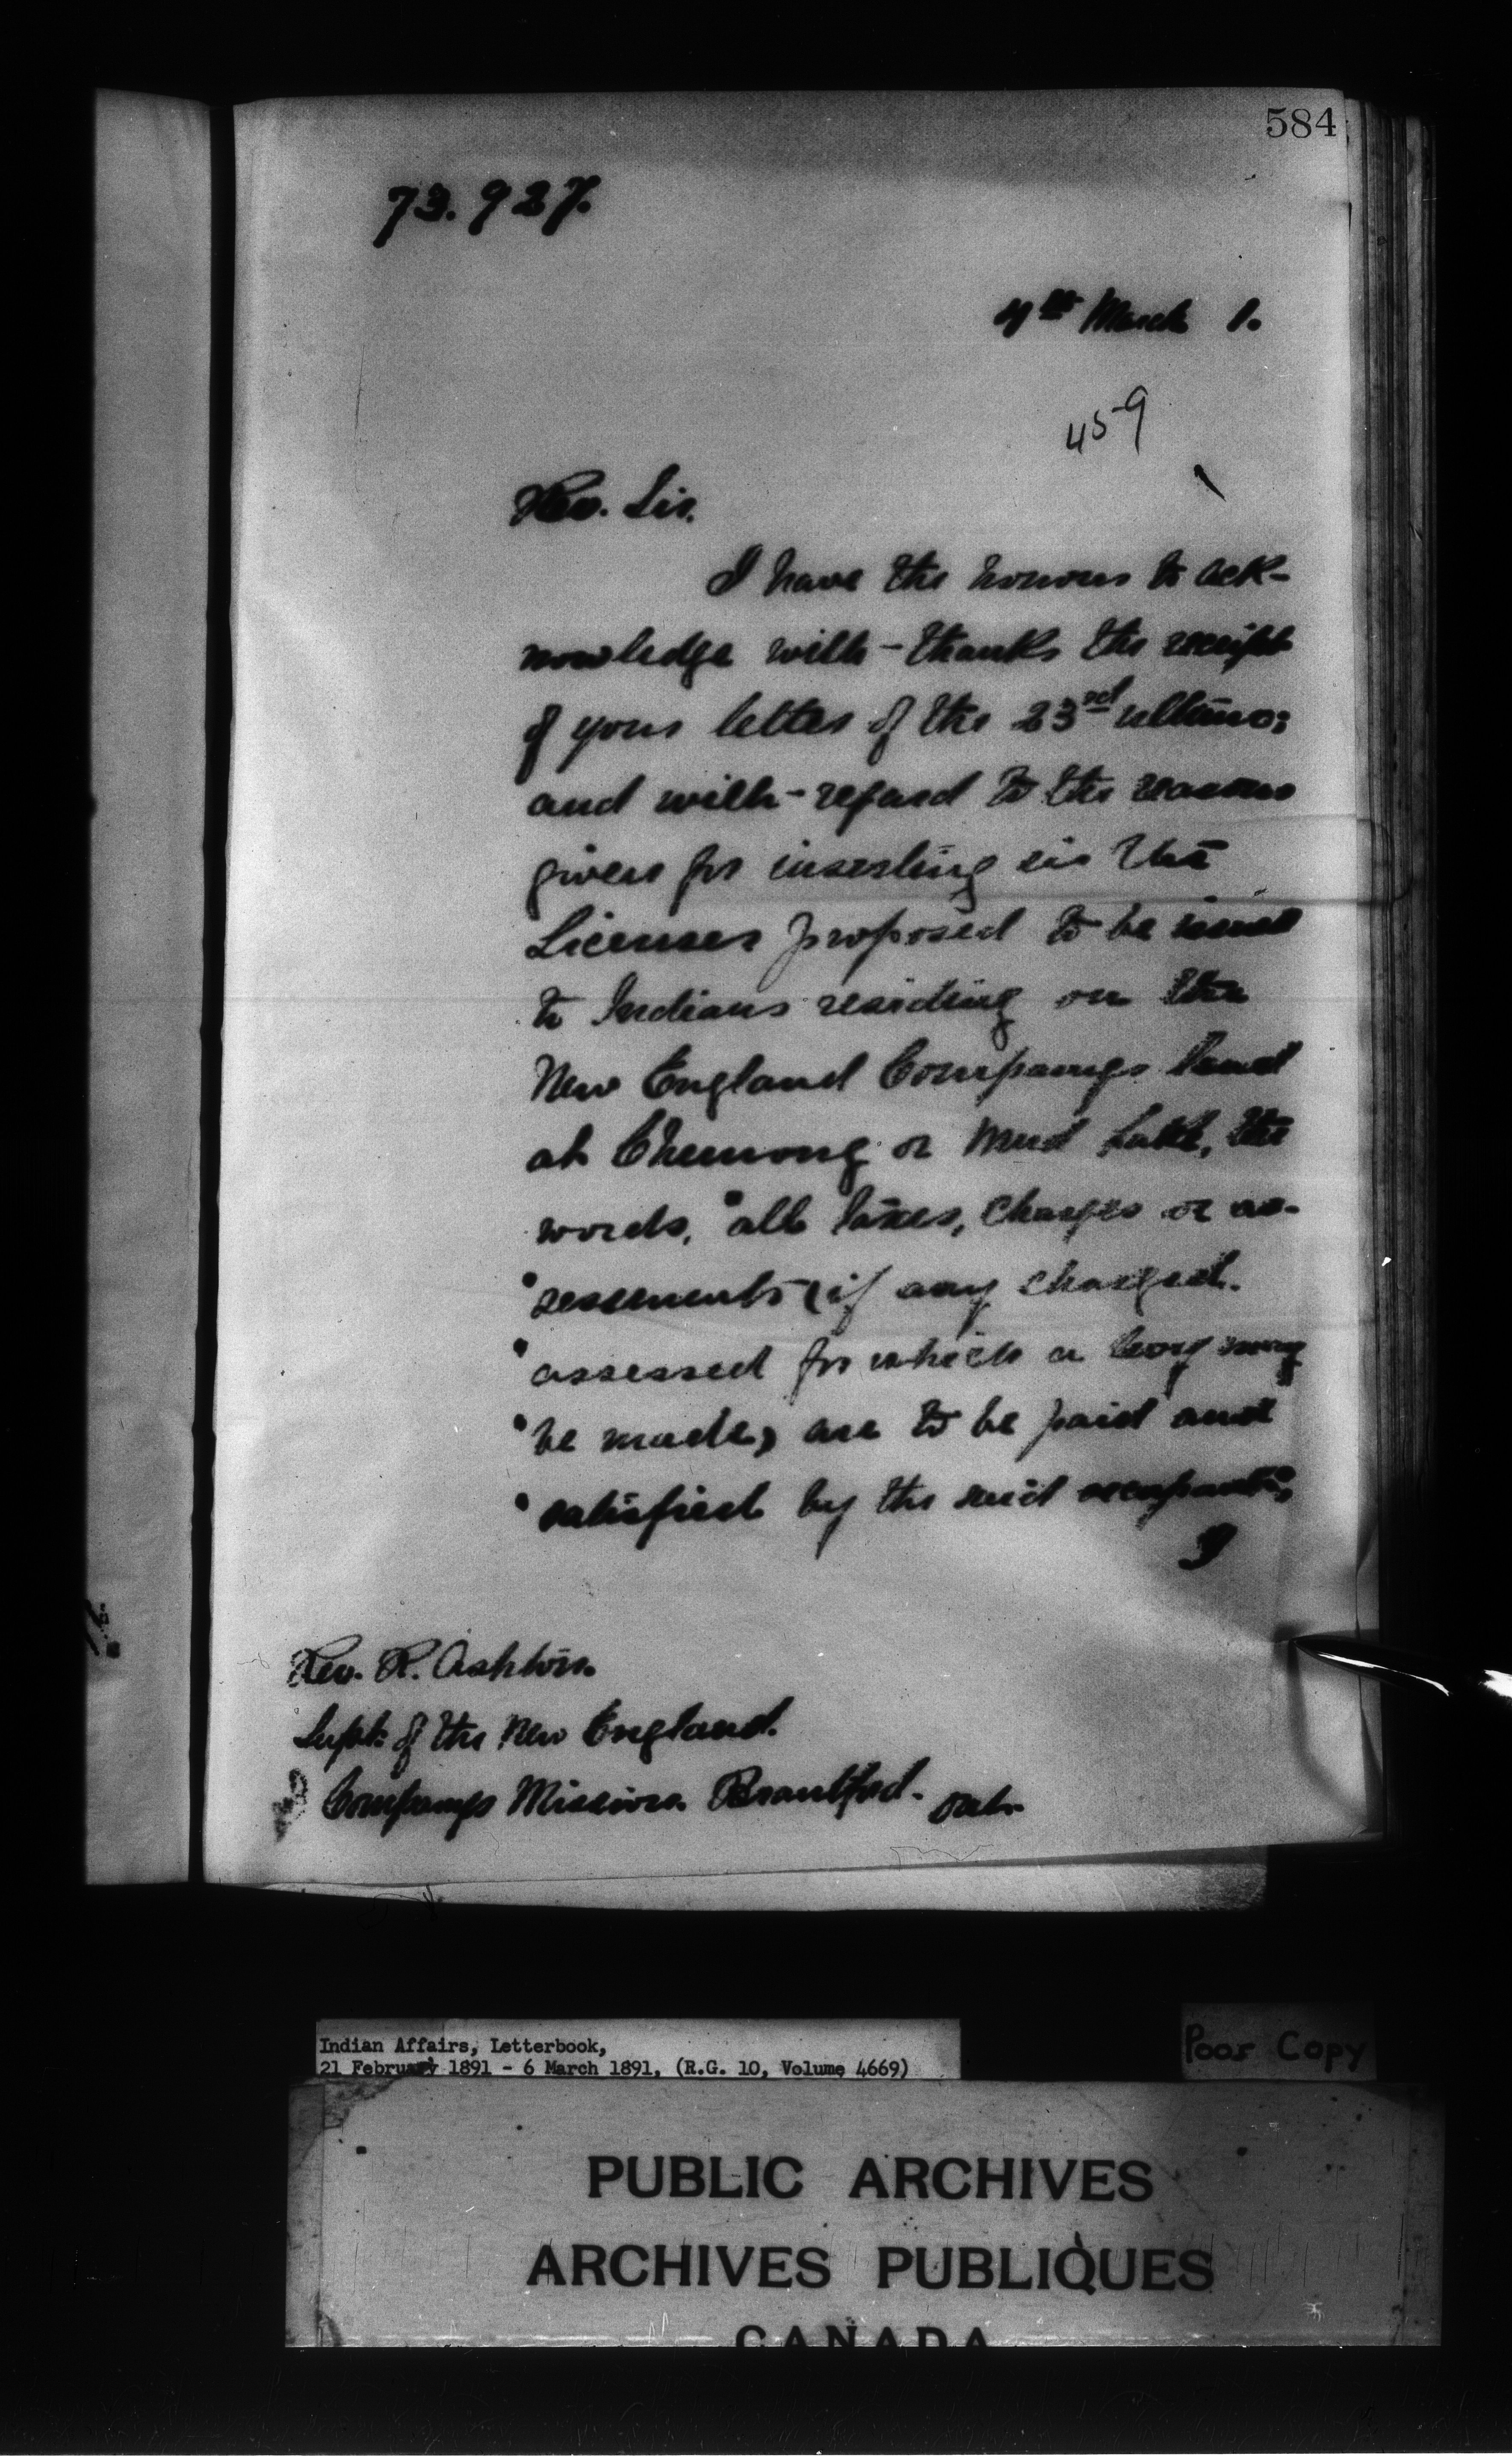 584
73.927.
4th March 1.
459
Rev. Sir.
I have the honour to ack-
nowledge with thanks the receipt
of your letter of the 23rd ultimo;
and with regard to the reasons
given for inserting in the
Licenses proposed to be issued
to Indians residing on the
New England Companys land
at Chemong or Mud Lake, the
words, "all taxes, charges or as-
"sessments (if any charged.
"assessed for which a levy may
"be made) are to be paid and
"satisfied by the said occupants;
I
Rev. R. Ashton.
Supt: of the New England.
Companys Mission. Brantford. Ont.
Indian Affairs, Letterbook,
21 February 1891 - 6 March 1891, (R.G. 10, Volume 4669)
Poor Copy
PUBLIC ARCHIVES
ARCHIVES PUBLIQUES
CANADA